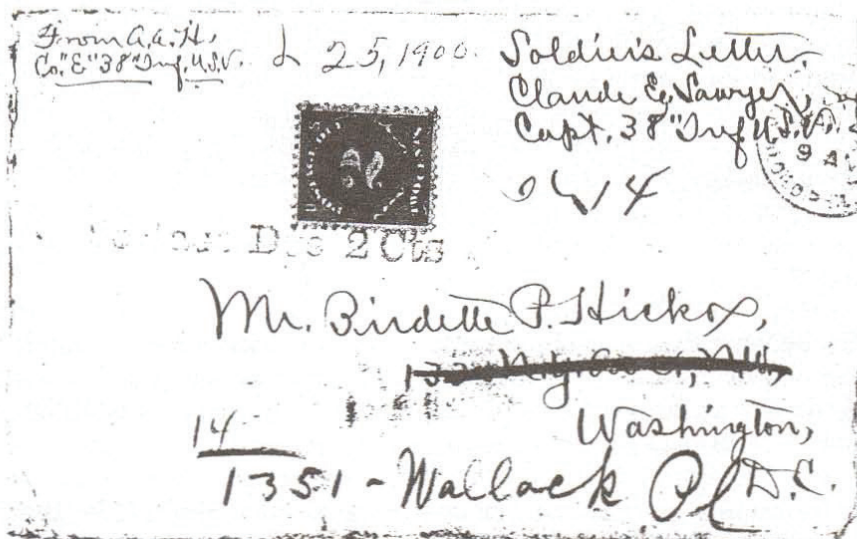 From A.A.H.
Co. "E" 38" Inf. U.S.V.
25, 1900.
Soldier's Letter.
Claude E. Sawyer,
Capt. 38" Inf. U.S.V.
Due 2 Cts
Mr. Birdette P. Hickox,
Washington,
D.C.
14
1351 - Wallack Pl